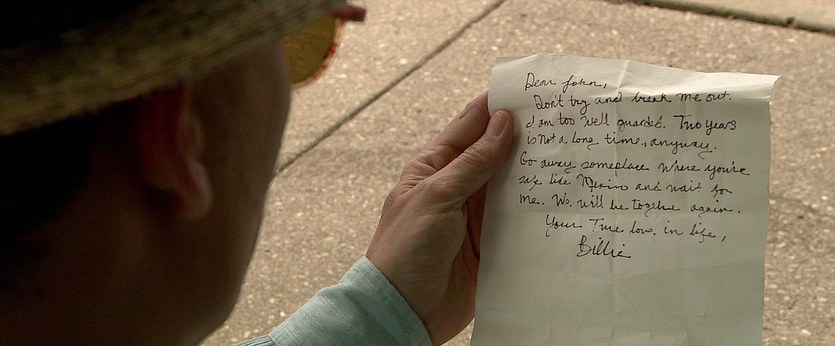 Dear John,
Don't try and break me out.
I am too well guarded. Two years
is not a long time, anyway.
Go away someplace where you're
safe like Mexico and wait for
me. We will be together again.
Your True love in life,
Billie